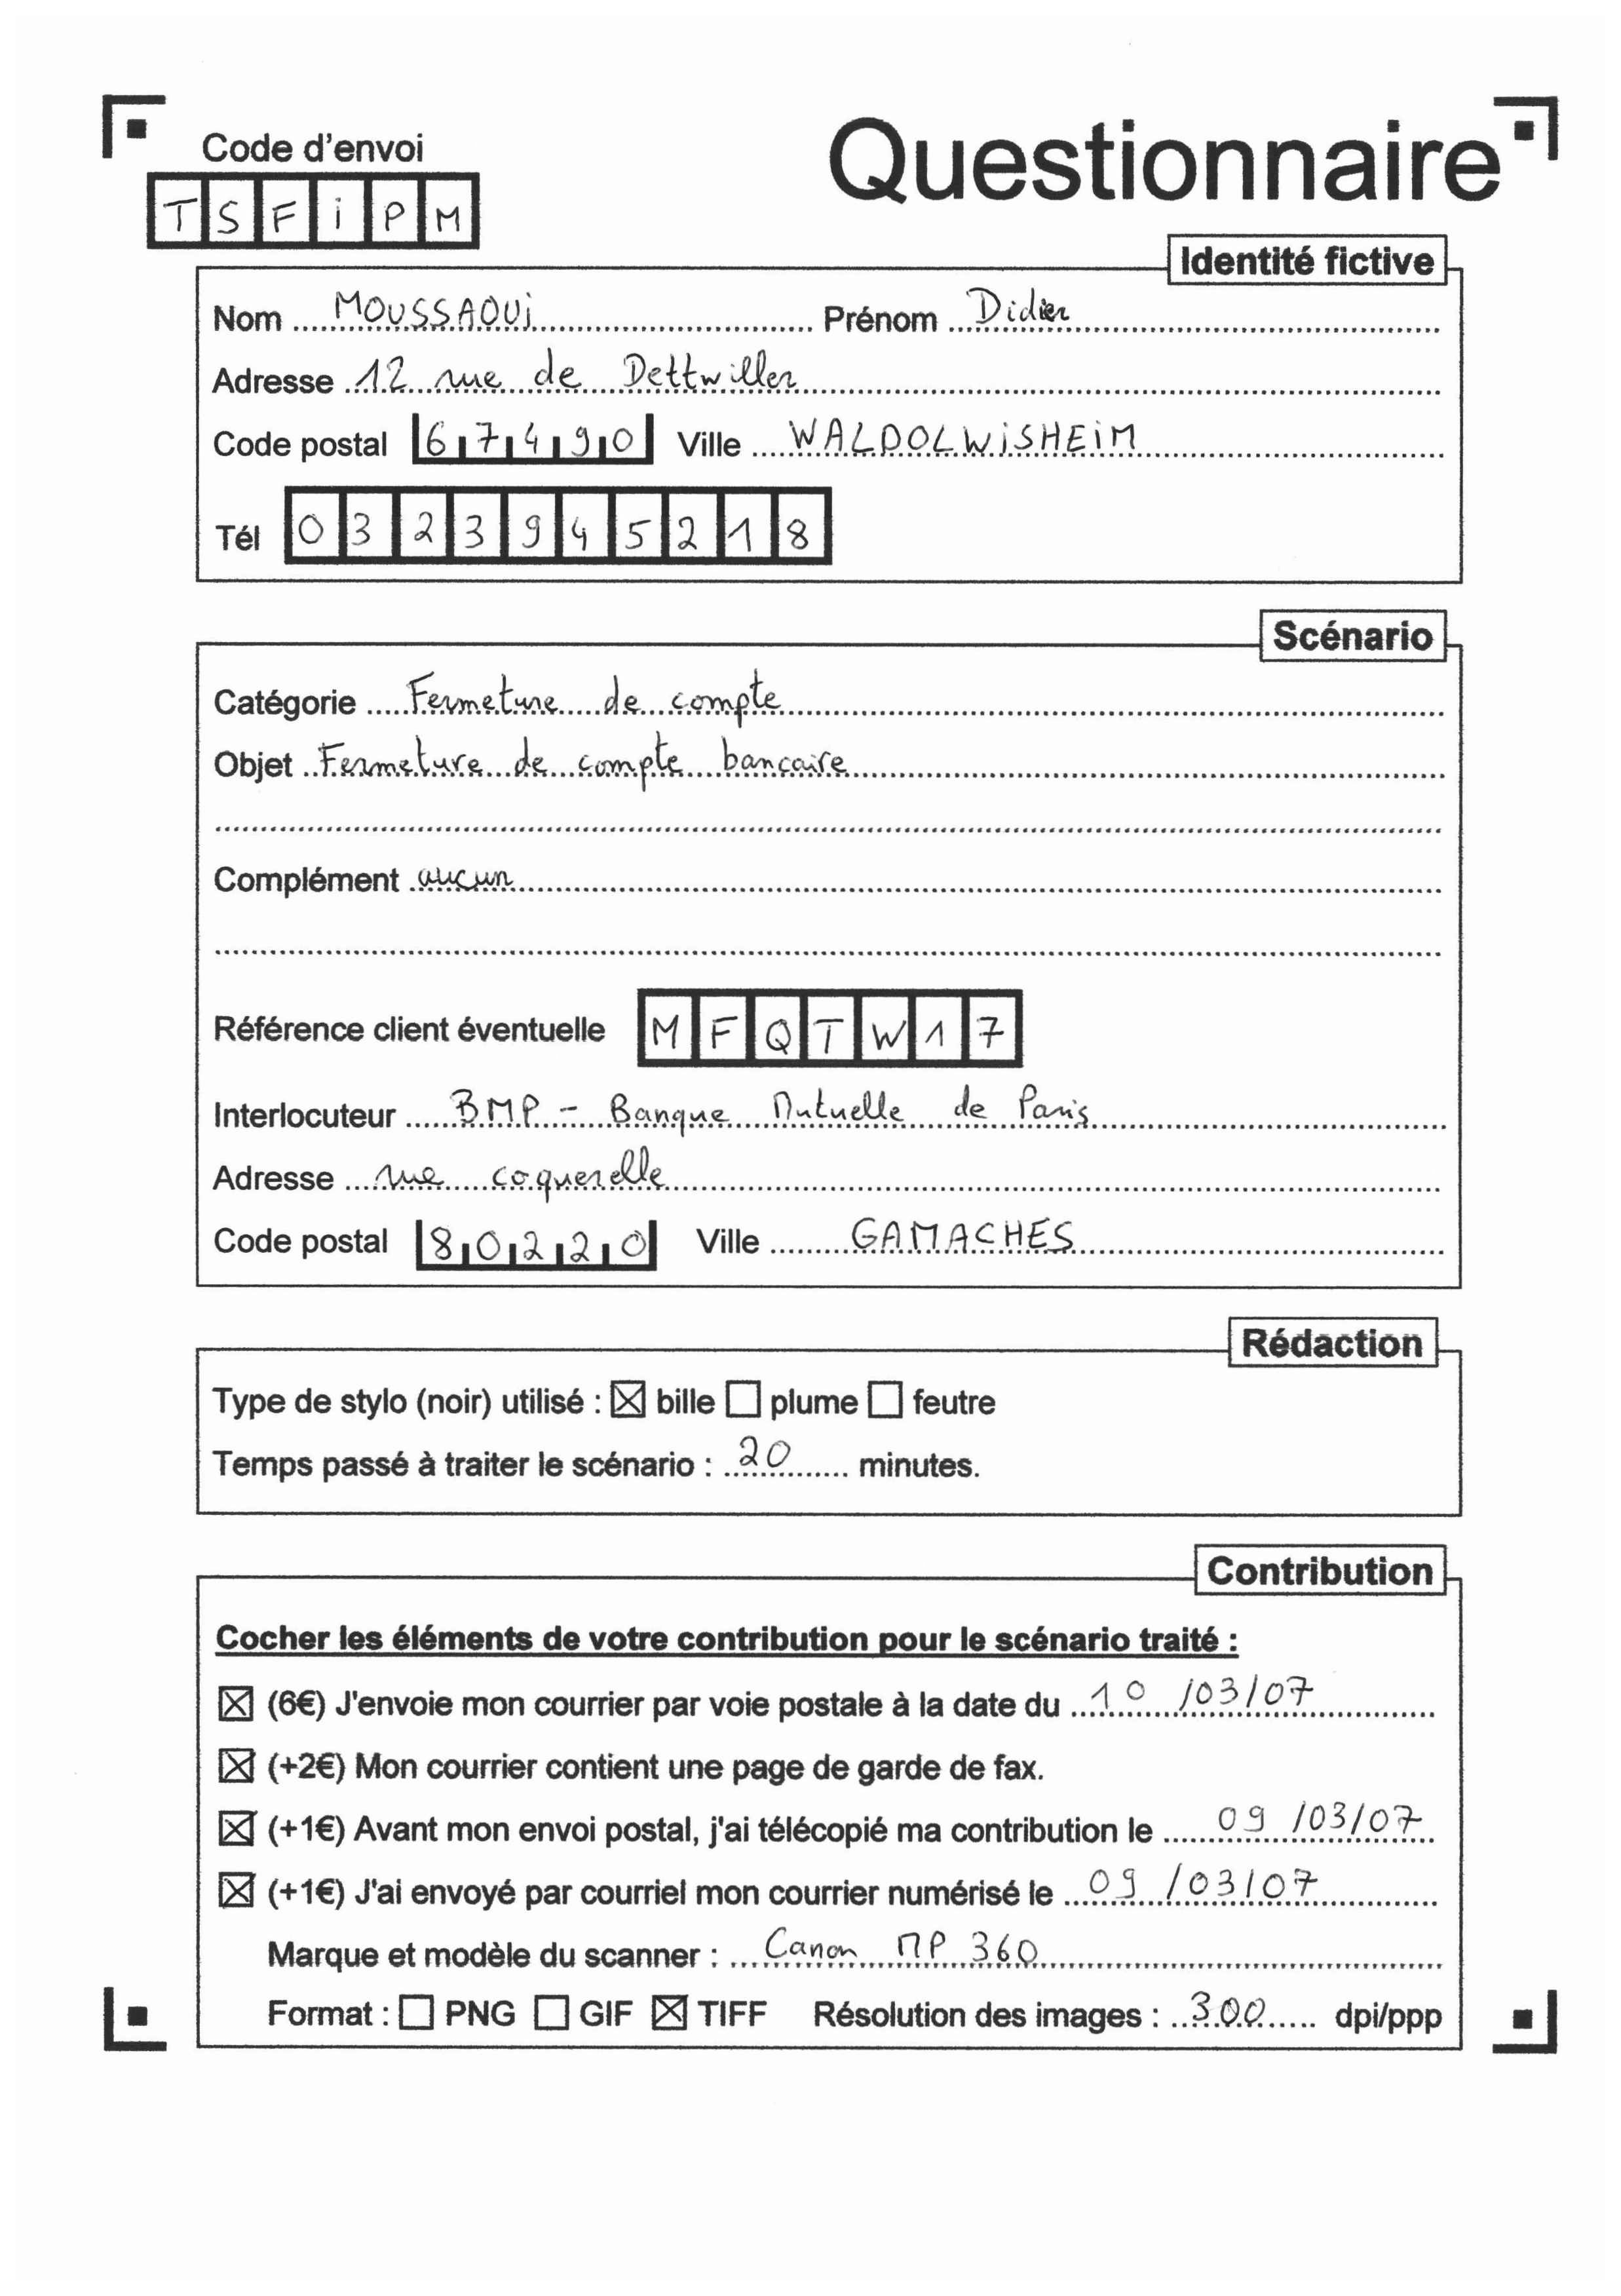 Code d'envoi
TSFiPM
Questionnaire
Identité fictive
Nom MOUSSAOUi Prénom Didier
Adresse 12 rue de Dettwiller
Code postal 67490 Ville WALDOLWiSHEiM
Tél 0323945218
Scénario
Catégorie Fermeture de compte
Objet Fermeture de compte bancaire
Complément aucun
Référence client éventuelle MFQTW17
Interlocuteur BMP - Banque Mutuelle de Paris
Adresse rue coquerelle
Code postal 80220 Ville GAMACHES
Rédaction
Type de stylo (noir) utilisé : ☒ bille ☐ plume ☐ feutre
Temps passé à traiter le scénario : 20 minutes.
Contribution
Cocher les éléments de votre contribution pour le scénario traité :
☒ (6€) J'envoie mon courrier par voie postale à la date du 10/03/07
☒ (+2€) Mon courrier contient une page de garde de fax.
☒ (+1€) Avant mon envoi postal, j'ai télécopié ma contribution le 09/03/07
☒ (+1€) J'ai envoyé par courriel mon courrier numérisé le 09/03/07
Marque et modèle du scanner : Canon MP 360
Format : ☐ PNG ☐ GIF ☒ TIFF Résolution des images : 300 dpi/ppp